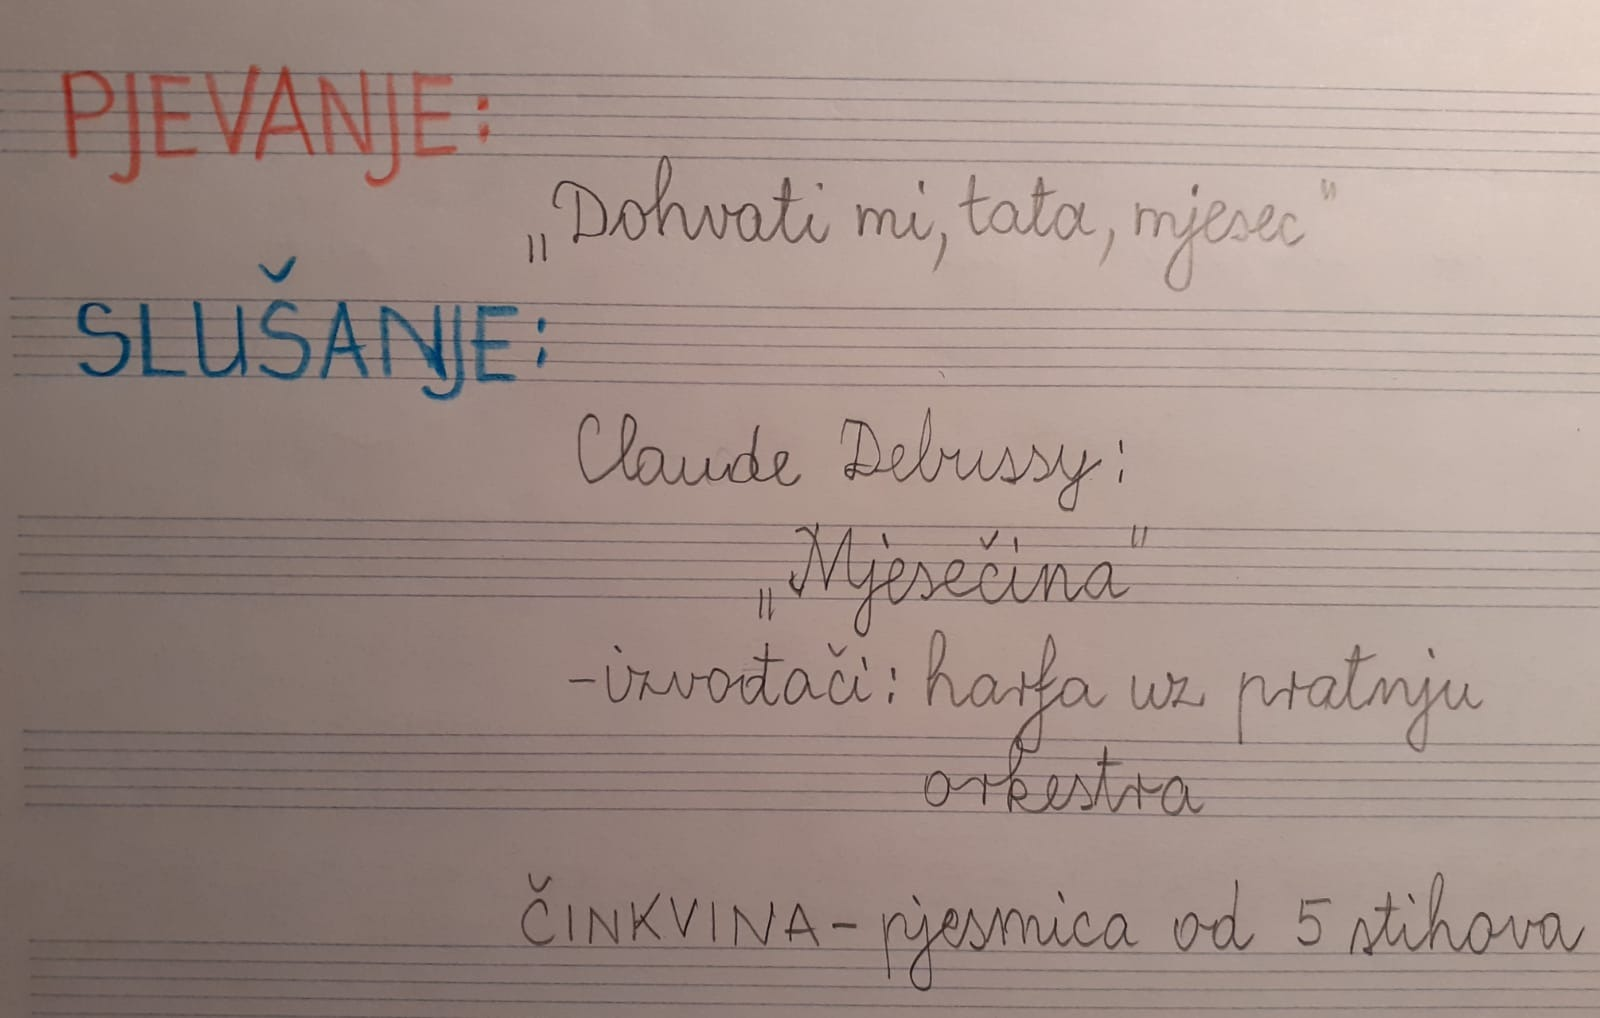 PJEVANJE:
„Dohvati mi, tata, mjesec"
SLUŠANJE:
Claude Debussy:
„Mjesečina"
-izvođači: harfa uz pratnju
orkestra
ČINKVINA - pjesmica od 5 stihova